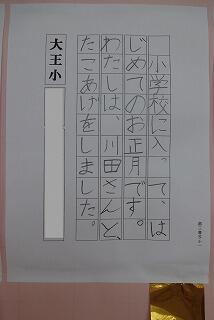 小学校に入って、は
じめてのお正月です。
わたしは、川田さんと、
たこあげをしました。
大王小